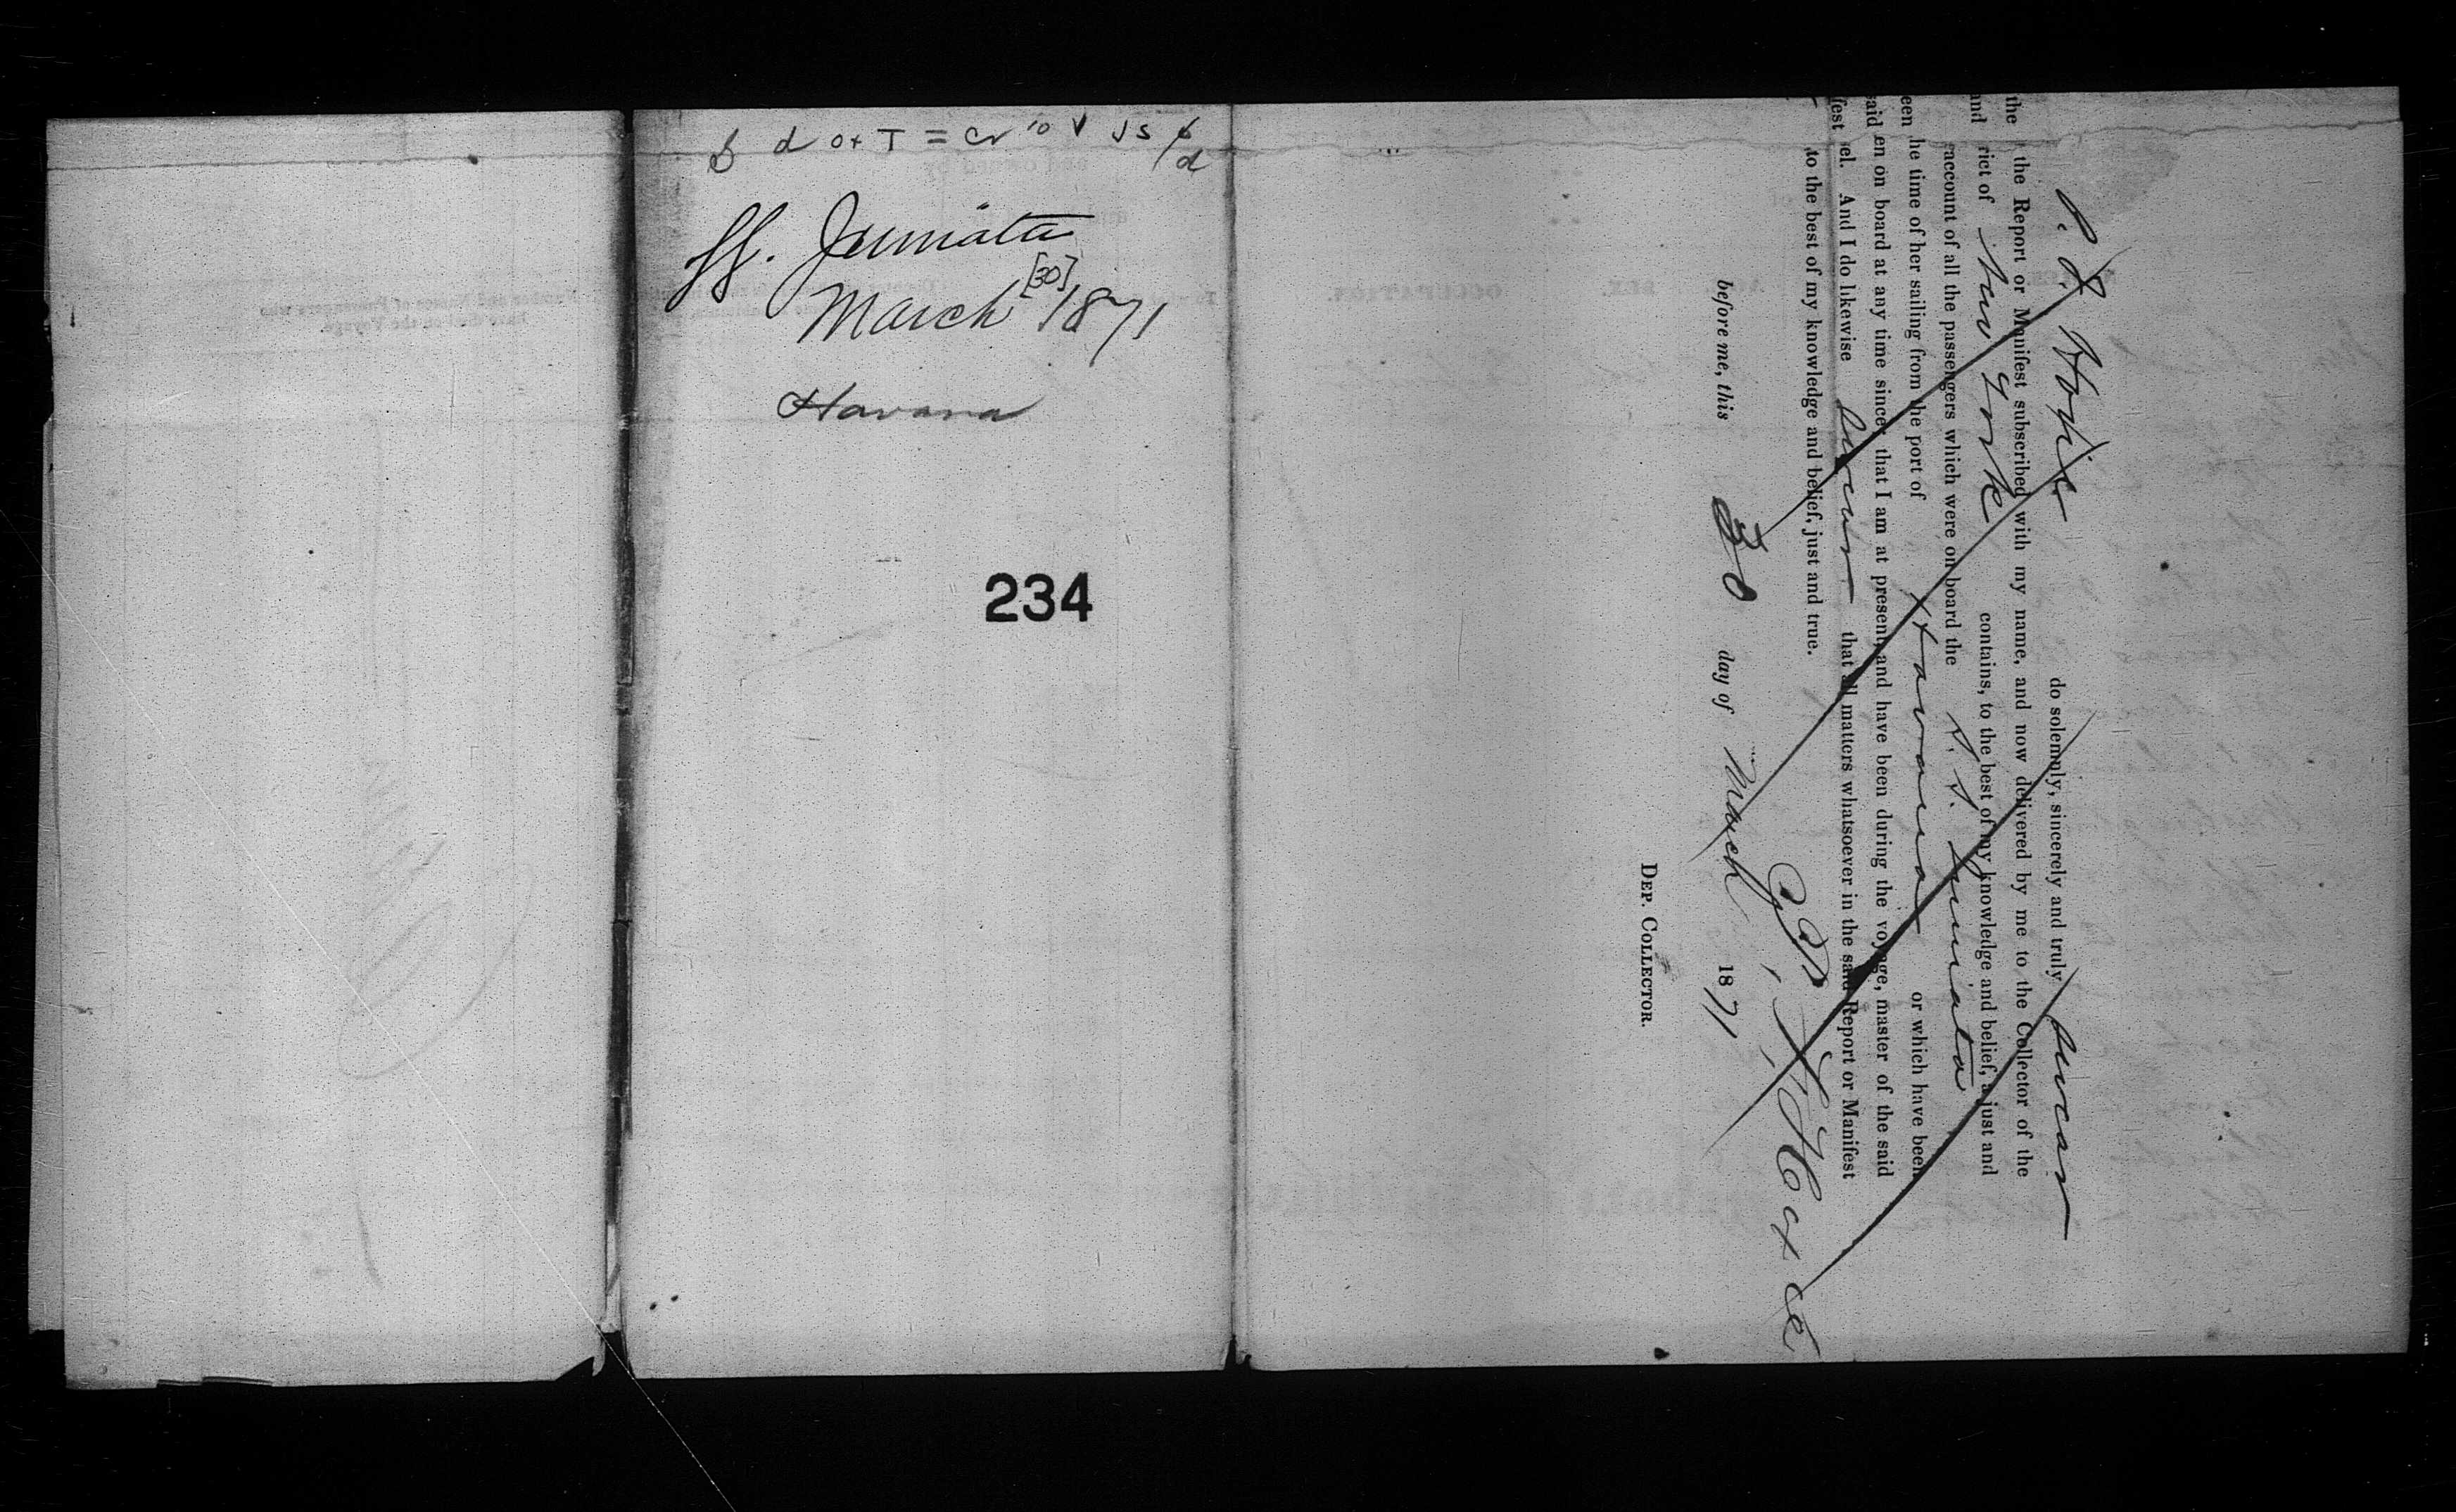 SS. Juniata
[30]
March 1871
Havana
234
P. F. Hoxie do solemnly, sincerely and truly swear
the the Report or Manifest subscribed with my name, and now delivered by me to the Collector of the
and rict of New York contains, to the best of my knowledge and belief, a just and
account of all the passengers which were on board the S. S. Juniata
een he time of her sailing from the port of Havana or which have been
said en on board at any time since; that I am at present, and have been during the voyage, master of the said
fest el. And I do likewise swear that all matters whatsoever in the said Report or Manifest
to the best of my knowledge and belief, just and true.
Hoxie
before me, this 30 day of March 1871
DEP. COLLECTOR.